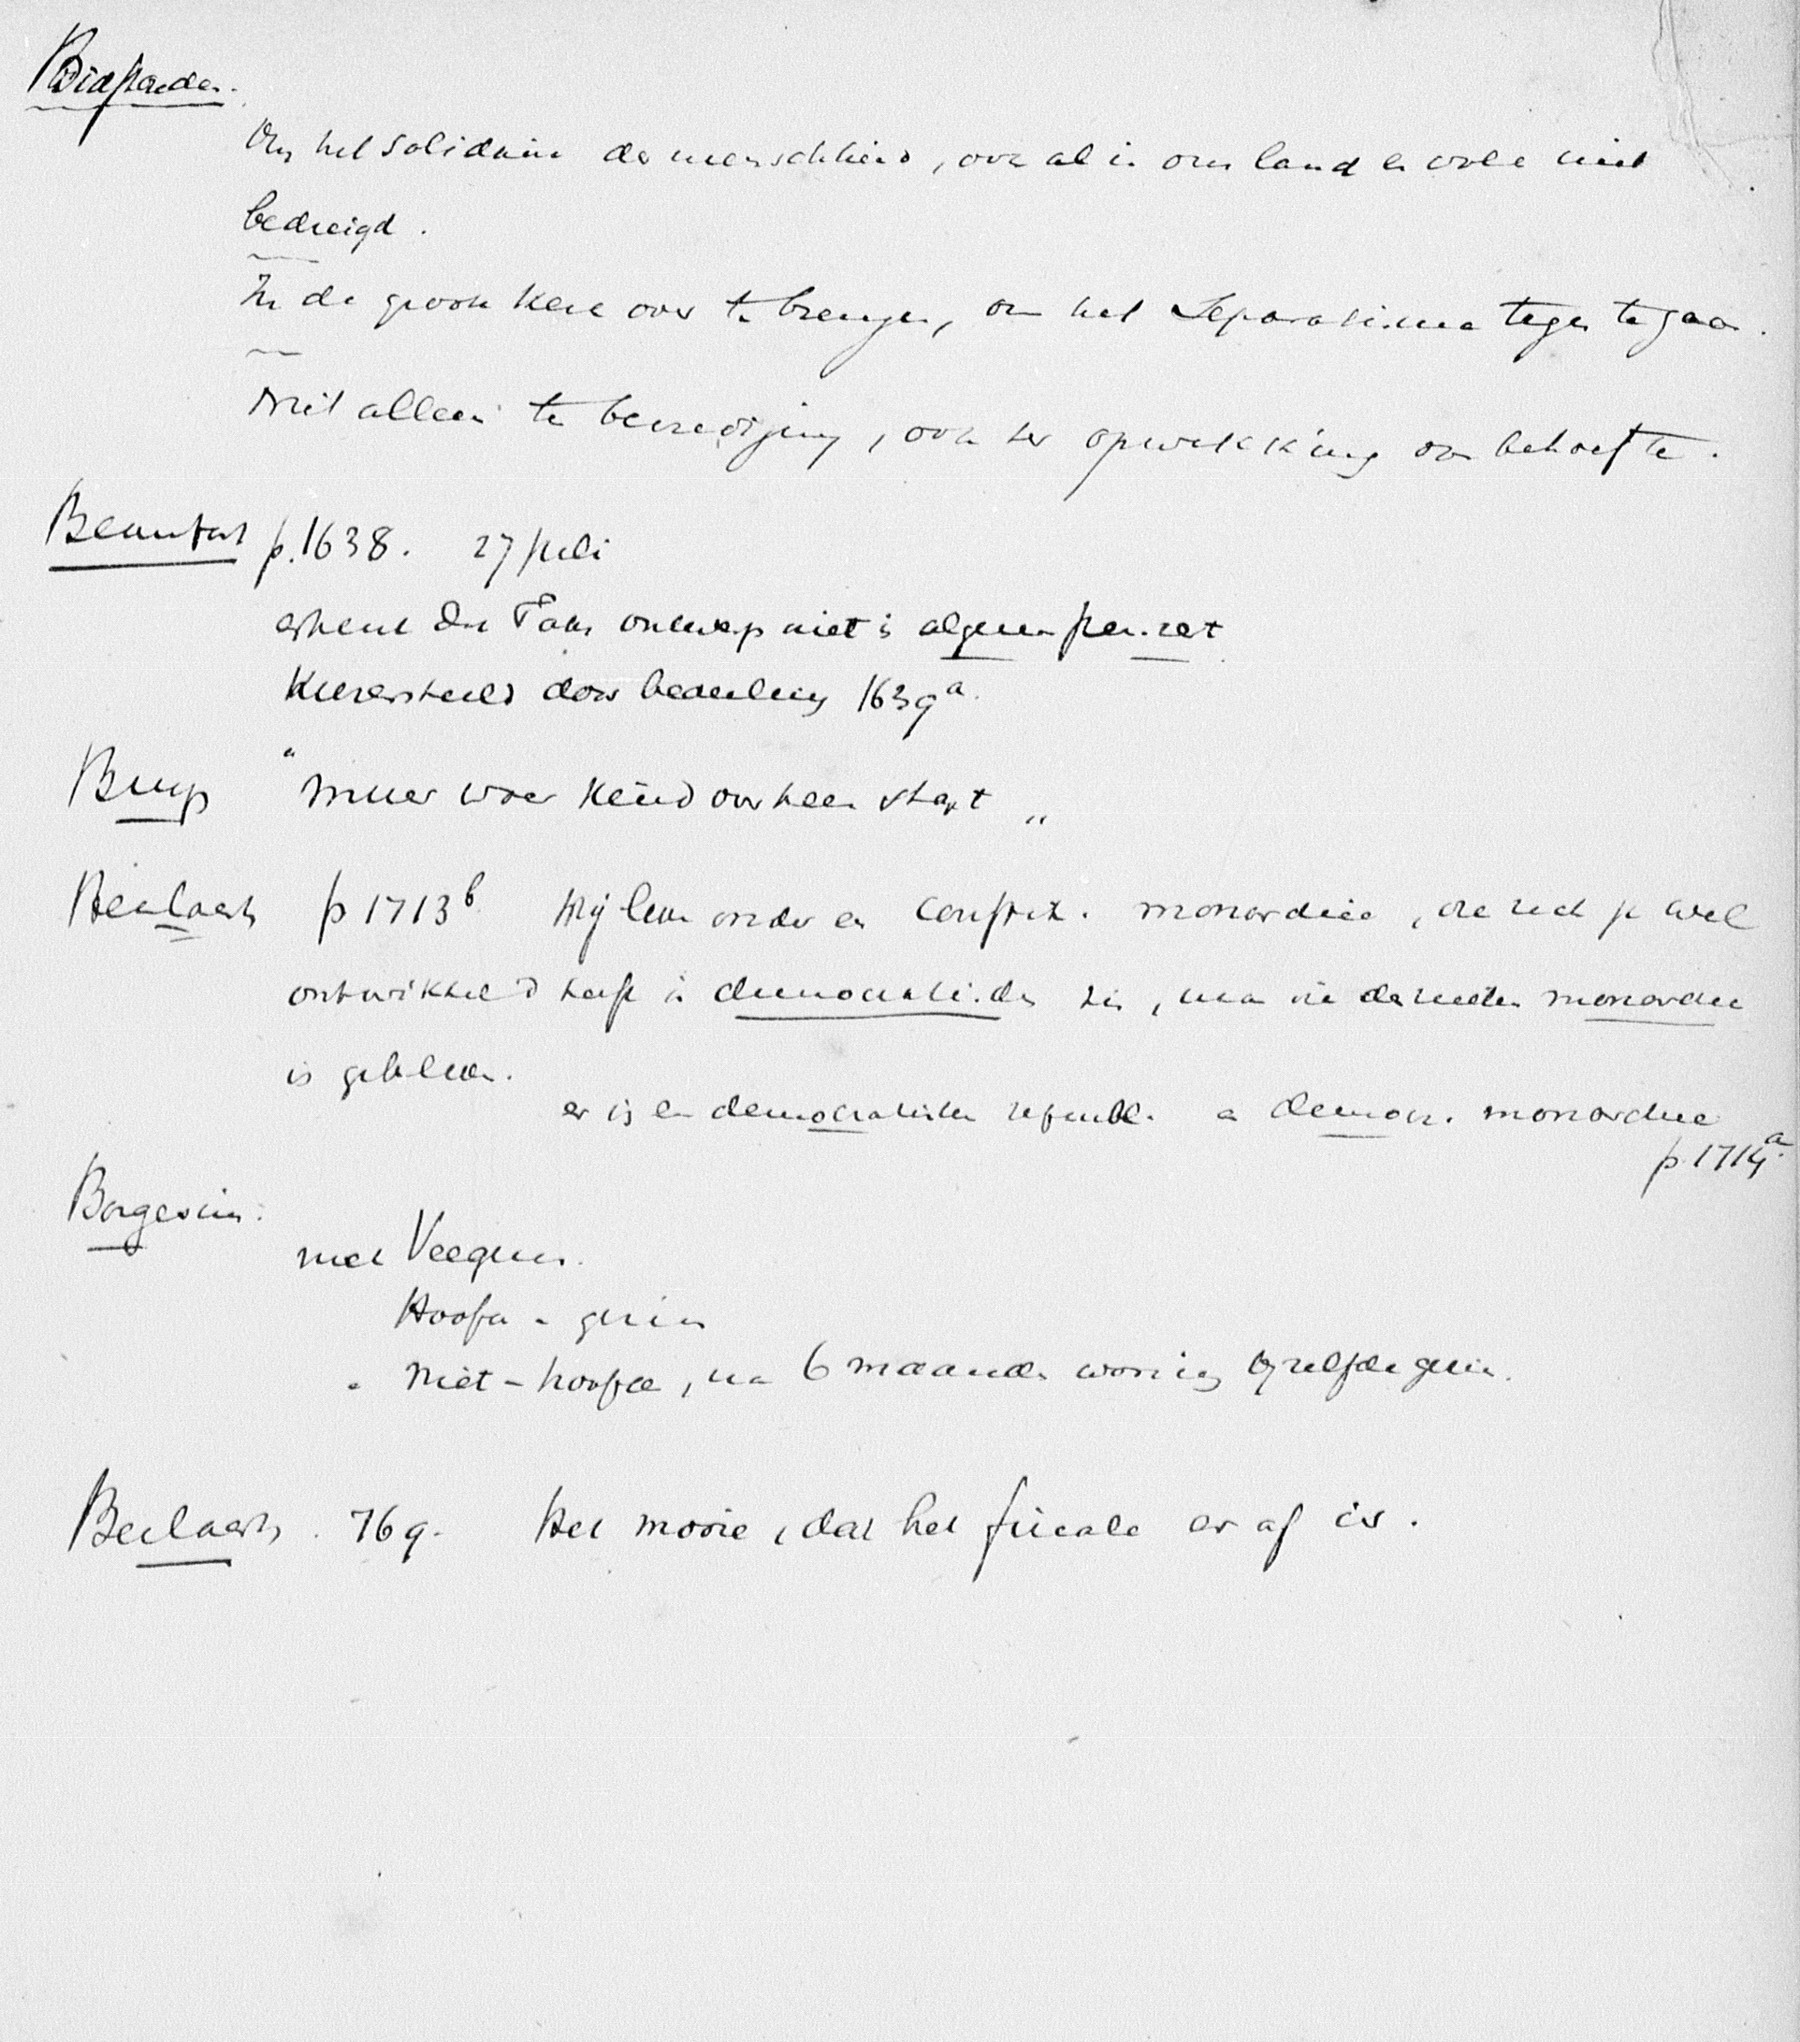 Bidstonden.
het solidaire der menschheid, ook al is ons land en volk niet
bedreigd.
In de groote kerk over te brengen, om het Separatisme tegen te gaan.
Niet alleen te bevrediging, ook ter opwekking van behoefte.
Beaufort p. 1638. 27 Juli
erkent dat Taks ontwerp niet is algemeen kiesrecht
Kiezersheeld door bedeeling 1639a.
Buys "muur waar kind over heen stapt"
Beelaerts p 1713b Wij leven onder en constit. monarchie, die zich je wel
ontwikkeld heeft in democratischen zin, maar die desniettem monarchie
is gebleven.
er is en democratische republ. en democr. monarchie
p. 1714a.
Borgesius.
met Veegens.
Hoofd - gezin
Niet-hoofd, na 6 maanden woning bij zelfde gezin.
Beelaerts. 769. Het mooie, dat het fiscale er af is.